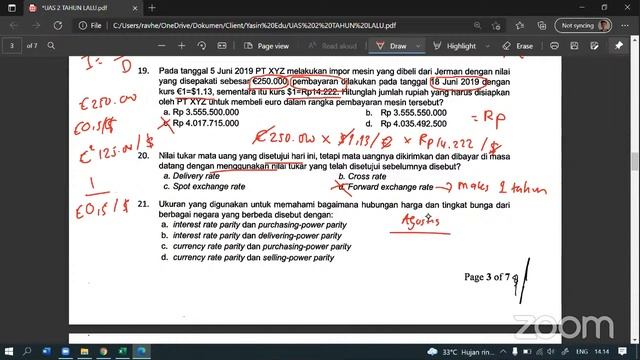 *UAS 2 TAHUN LALU.pdf
File | C:/Users/ravhe/OneDrive/Dokumen/Client/Yasin%20Edu/UAS%202%20TAHUN%20LALU.pdf
Not syncing
3 of 7
Draw
D
19. Pada tanggal 5 Juni 2019 PT XYZ melakukan impor mesin yang dibeli dari Jerman dengan nilai
yang disepakati sebesar €250.000 pembayaran dilakukan pada tanggal 18 Juni 2019 dengan
kurs €1=$1.13, sementara itu kurs $1=Rp14.222. Hitunglah jumlah rupiah yang harus disiapkan
oleh PT XYZ untuk membeli euro dalam rangka pembayaran mesin tersebut?
a. Rp 3.555.500.000
b. Rp 3.555.550.000
c. Rp 4.017.715.000
d. Rp 4.035.492.500
= Rp
€250.000
€0,5/$
€ 125.00/$
1
€0,5/$
€250.000 × $1.13/€ × Rp14.222/$
20. Nilai tukar mata uang yang disetujui hari ini, tetapi mata uangnya dikirimkan dan dibayar di masa
datang dengan menggunakan nilai tukar yang telah disetujui sebelumnya disebut?
a. Delivery rate
b. Cross rate
c. Spot exchange rate
d. Forward exchange rate → maks 1 tahun
21. Ukuran yang digunakan untuk memahami bagaimana hubungan harga dan tingkat bunga dari
berbagai negara yang berbeda disebut dengan:
Agustus
a. interest rate parity dan purchasing-power parity
b. interest rate parity dan delivering-power parity
c. currency rate parity dan purchasing-power parity
d. currency rate parity dan selling-power parity
Page 3 of 7
zoom
33°C Hujan rin...
ENG
14.14